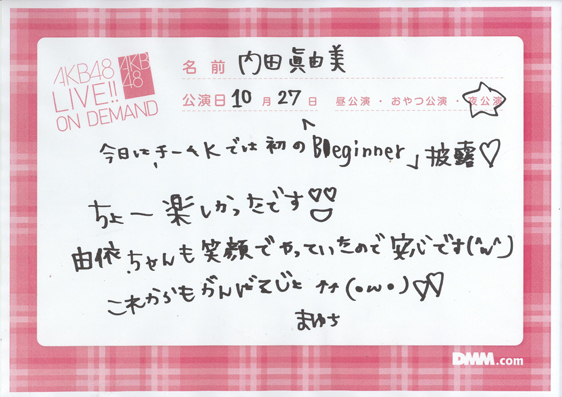 AKB48
LIVE!!
ON DEMAND
AKB
48
名前 内田眞由美
公演日 10月27日 昼公演・おやつ公演・夜公演
今日はチームKでは初の「Beginner」披露♡
ちょー楽しかったです
由依ちゃんも笑顔でやっていたので安心です(^ω^)
これからもがんばるじょ ↑↑(•ω•)♡♡
まゆち
DMM.com